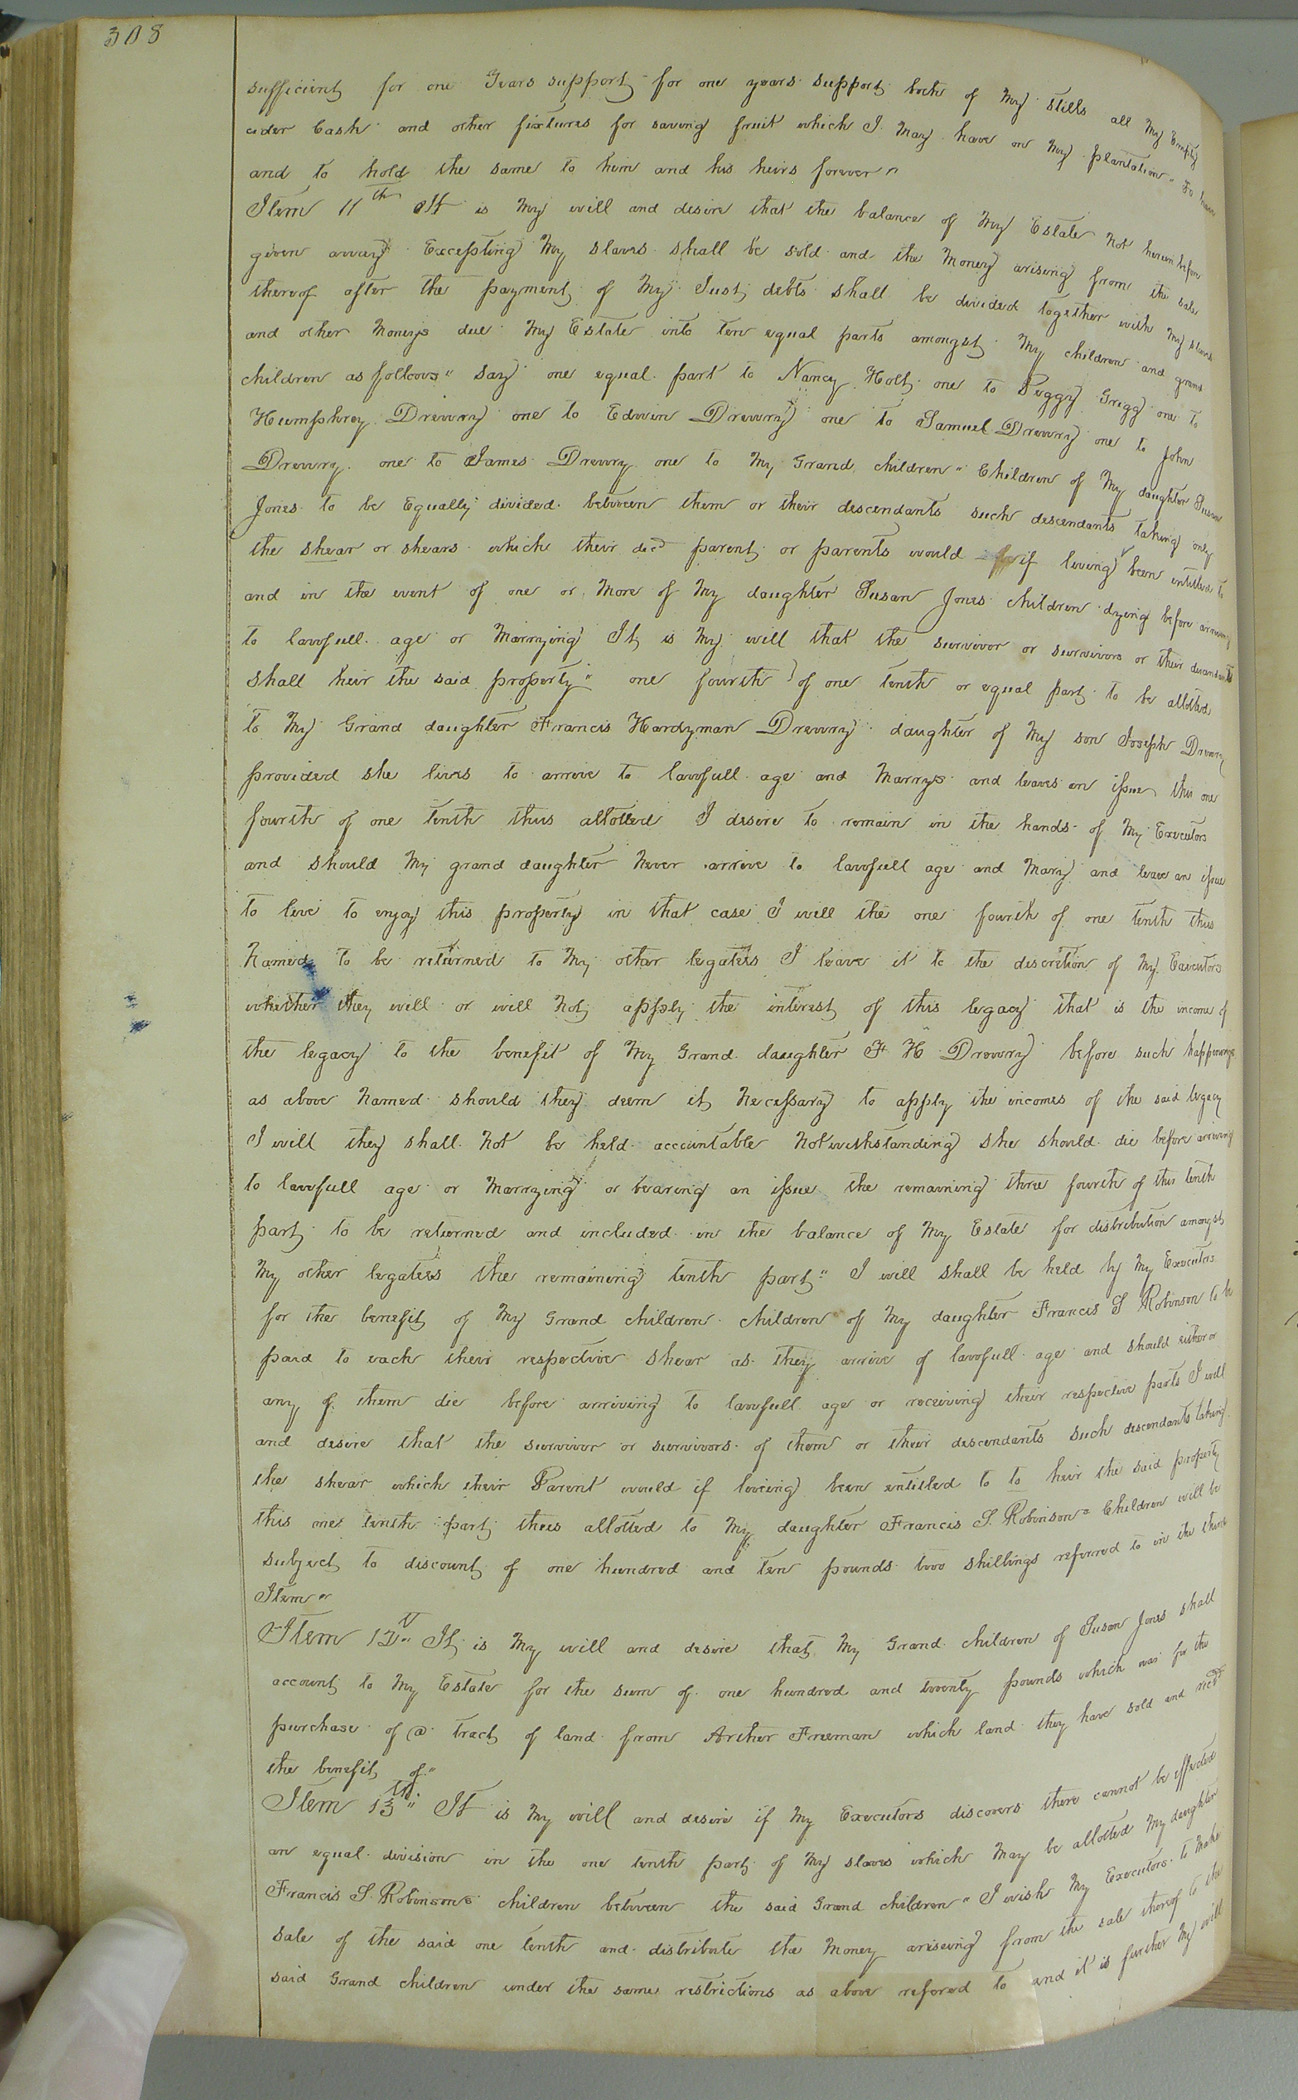 308
sufficient for one Years support for one years support both of my stills all my Empty
cider Cask and other fixtures for saving fruit which I may have on my plantation " To have
and to hold the same to him and his heirs forever "
Item 11th It is my will and desire that the balance of my Estate not herein before
given away Excepting my slaves shall be sold and the money arising from the sales
thereof after the payment of my Just debts shall be divided together with my slaves
and other moneys due my Estate into ten equal parts amongst my children and grand
children as follows " Say one equal part to Nancy Holt one to Peggy Grigg one to
Humphrey Drewry one to Edwin Drewry one to Samuel Drewry one to John
Drewry one to James Drewry one to my Grand children " Children of my daughter Susan
Jones to be Equally divided between them or their descendants such descendants taking only
the shear or shears which their decd parent or parents would if living been intitled to
and in the event of one or more of my daughter Susan Jones children dying before arriving
to lawfull age or Marrying It is my will that the survivor or survivors or their descendants
shall heir the said property " one fourth of one tenth or equal part to be allotted
to my Grand daughter Francis Hardyman Drewry daughter of my son Joseph Drewry
provided she lives to arrive to lawfull age and Marrys and leaves an issue this one
fourth of one tenth thus allotted I desire to remain in the hands of my Executors
and should my grand daughter never arrive to lawfull age and Mary and leave an issue
to live to enjoy this property in that case I will the one fourth of one tenth thus
Named to be returned to my other legatees I leave it to the discretion of my Executors
whether they will or will not apply the interest of this legacy that is the income of
the legacy to the benefit of my Grand daughter F H Drewry before such happenings
as above named should they deem it necessary to apply the incomes of the said legacy
I will they shall not be held accountable notwithstanding she should die before arriving
to lawfull age or Marrying or bearing an issue the remaining three fourth of this tenth
part to be returned and included in the balance of my Estate for distribution amongst
my other legatees the remaining tenth part " I will shall be held by my Executors
for the benefit of my Grand children children of my daughter Francis S Robinson to be
paid to each their respective shear as they arrive of lawfull age and should either or
any of them die before arriving to lawfull age or receiving their respective parts I will
and desire that the survivor or survivors of them or their descendants such descendants taking
the shear which their Parent would if liveing been entitled to to heir the said property
this one tenth part thus allotted to my daughter Francis S. Robinson" Children will be
subject to discount of one hundred and ten pounds two shillings referred to in the third
Item "
Item 12" It is my will and desire that my Grand children of Susan Jones shall
account to my Estate for the sum of one hundred and twenty pounds which was for the
purchase of @ tract of land from Archer Freeman which land they have sold and recd
the benefit of "
Item 13th " It is my will and desire if my Executors discovers there cannot be effected
an equal division in the one tenth part of my slaves which may be allotted my daughter
Francis S. Robinsons children between the said Grand children " I wish my Executors to make
sale of the said one tenth and distribute the money ariseing from the sale thereof to the
said Grand children under the same restrictions as above refered to and it is further my will